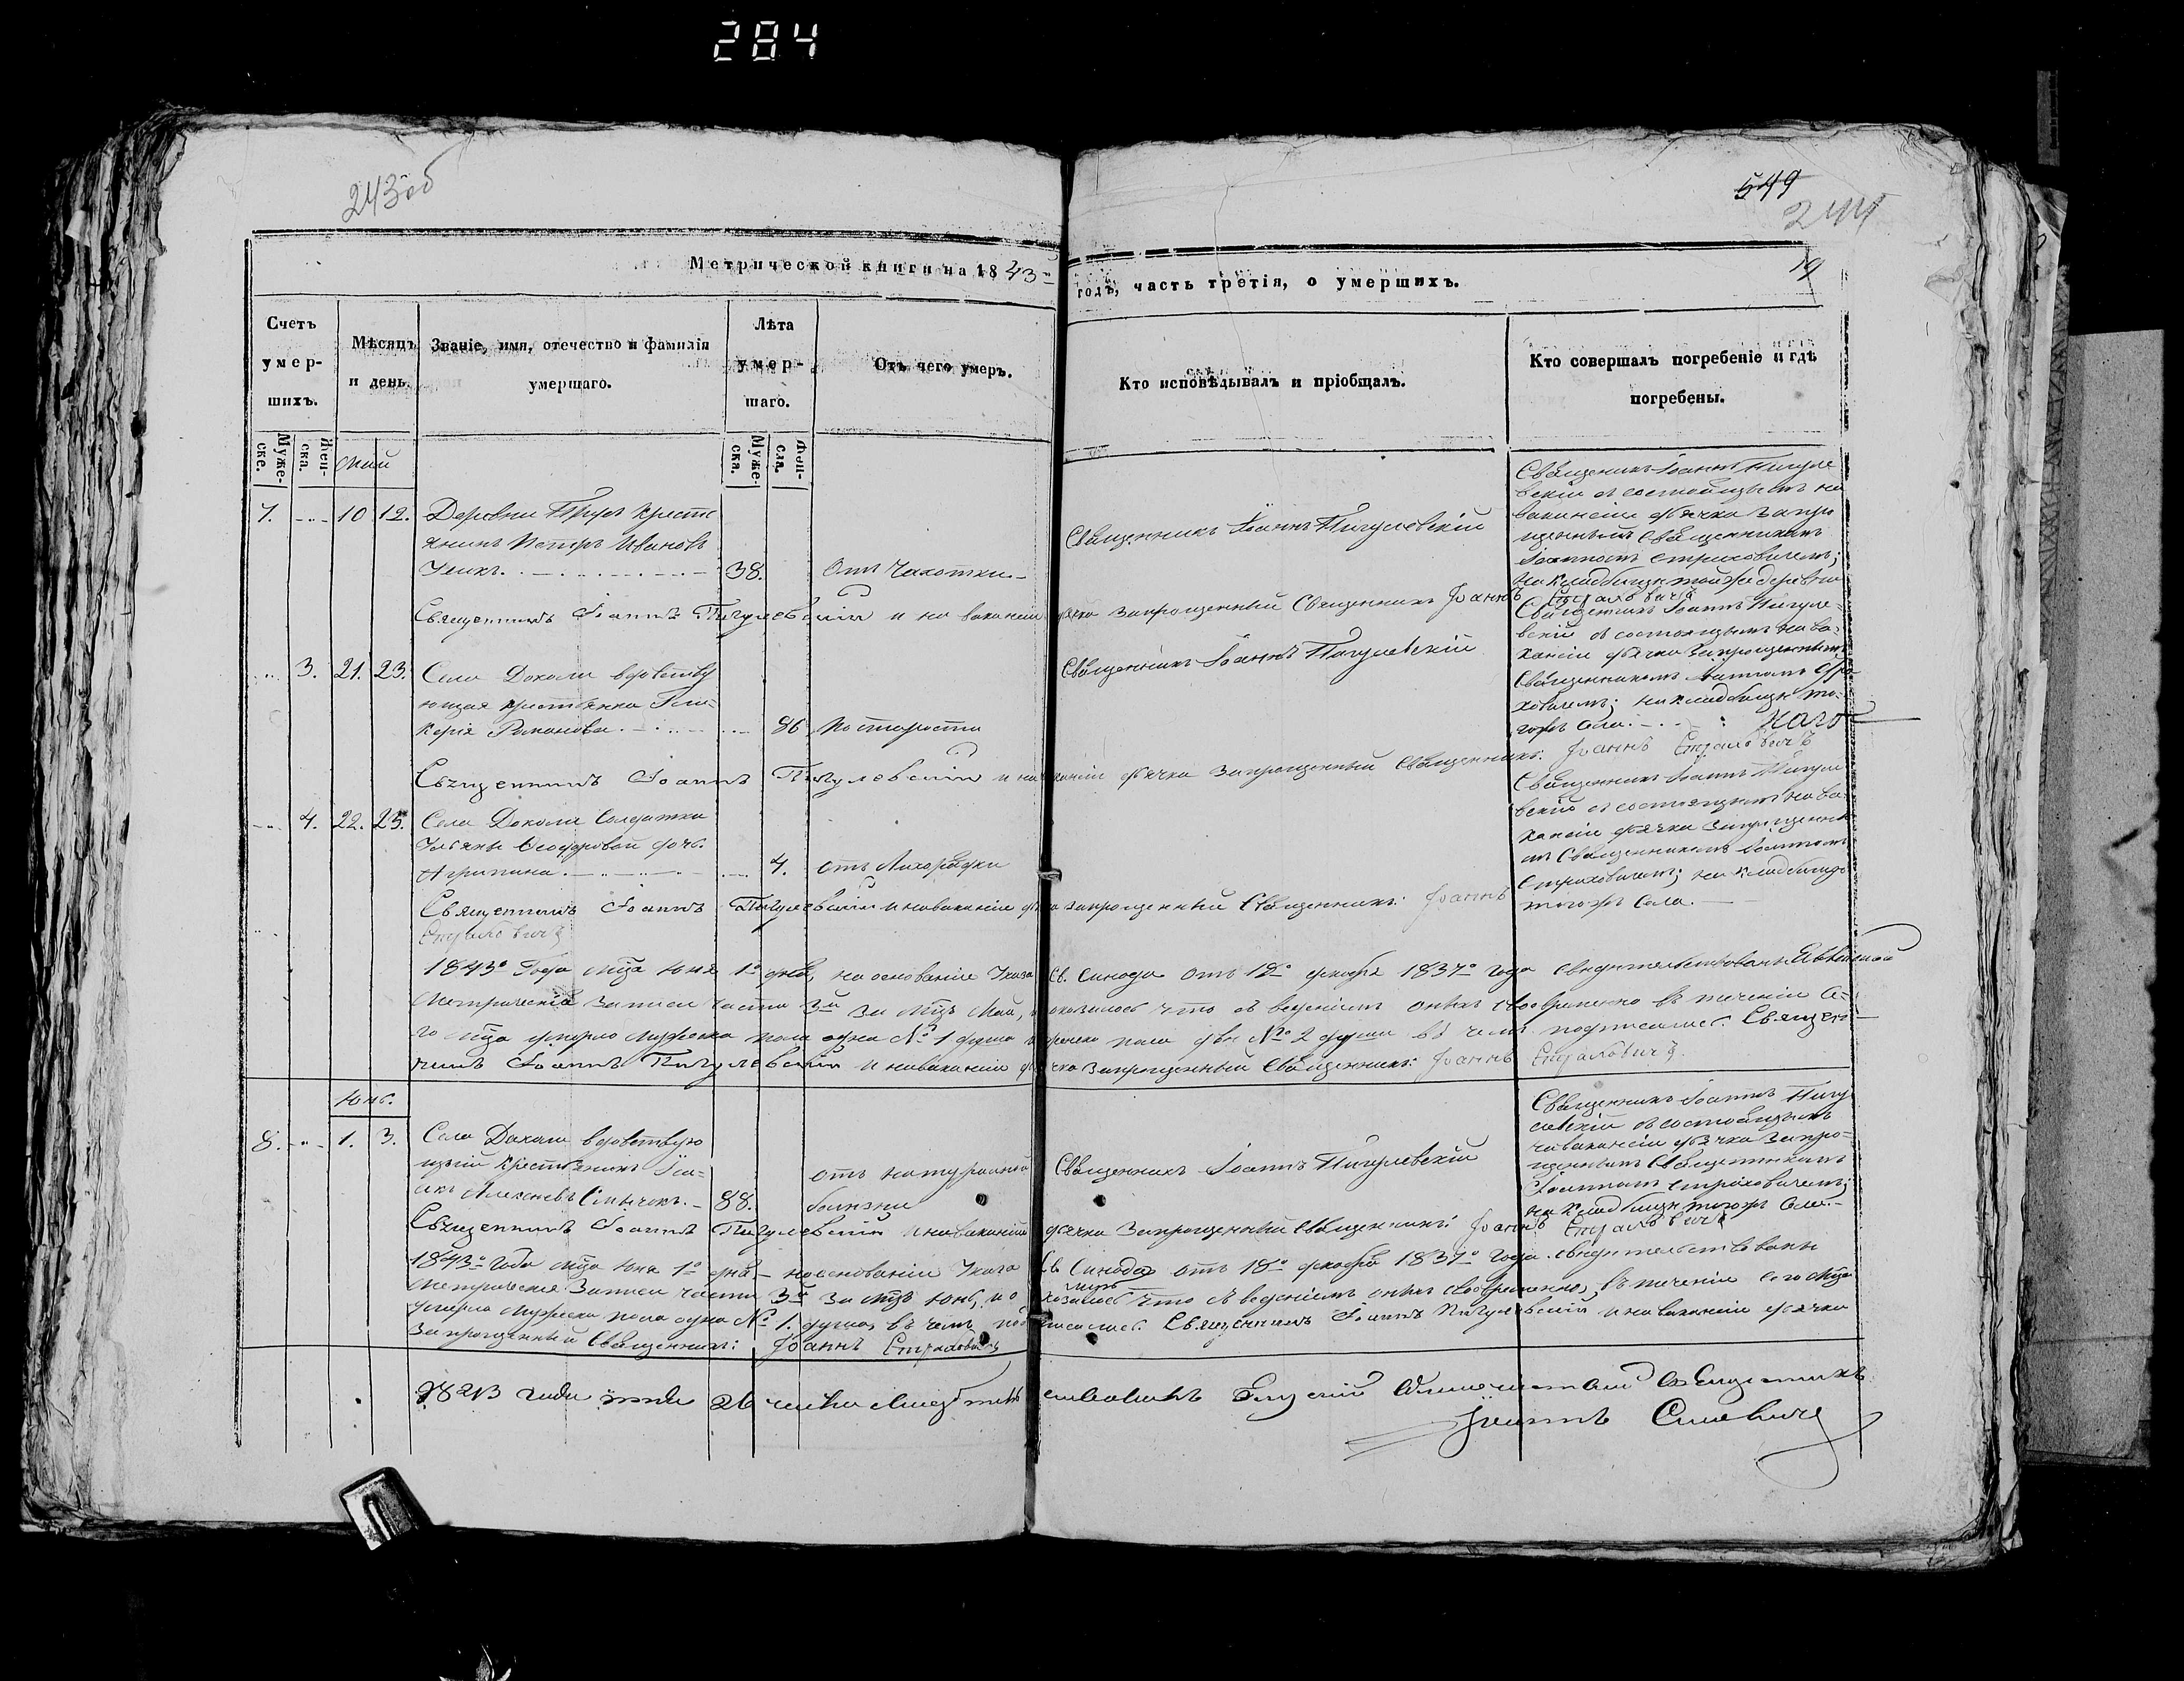 284
243об
549
244
19
Метрической книги на 1843 годъ, часть третія, о умершихъ.
Счетъ умер-шихъ.
Мѣсяцъ и день.
Званіе, имя, отечество и фамилія умершаго.
Лѣта умер-шаго.
Отъ чего умеръ.
Кто исповѣдывалъ и пріобщалъ.
Кто совершалъ погребеніе и гдѣ погребены.
Муже-ске.
Жен-ска.
Муже-ска.
Жен-ска.
Май
7. 10 12. Деревни крестья
янинъ Петръ Ивановъ
38. Отъ Чахотки
Священникъ Іоаннъ Пигулевскій
Священникъ Іоаннъ Пигуле
вскій съ состоящимъ на
вакансіи дьячка запре
щеннымъ Священникомъ
Іоанномъ Страховичемъ;
на кладбищѣ той же деревни
Священникъ Іоаннъ Пигулевскій и на вакансіи дьячка запрещенный Священникъ Іоаннъ Страховичъ
3. 21. 23. Села Доколи вдовству
ющая крестьянка Гли-
керія Романова 86 по старости
Священникъ Іоаннъ Пигулевскій
Священникъ Іоаннъ Пигуле-
вскій съ состоящимъ на ва-
кансіи дьячка запрещеннымъ
Священникомъ Іоанномъ Стра-
ховичемъ; на кладбищѣ то-
гожъ села.
Священникъ Іоаннъ Пигулевскій и на вакансіи дьячка запрещенный Священникъ: Іоаннъ Страховичъ
4. 22. 23. Села Доколи Солдатки
Ульяны Ѳеодоровой дочь
Агрипина 4. отъ Лихорадки
Священникъ Іоаннъ Пигуле
вскій съ состоящимъ на ва-
кансіи дьячка запрещенны
мъ Священникомъ Іоанномъ
Страховичемъ; на кладбищѣ
тогожъ Села.
Священникъ Іоаннъ Пигулевскій и на вакансіи дьячка запрещенный Священникъ: Іоаннъ
Страховичъ
1843го Года мца Юня 1го дня, на основаніе Указа Св. Синода отъ 18го декабря 1837го года свидѣтельствованы
Метрическія записи части 3й за мцъ Май, и оказалось что съ веденіемъ оныхъ своевременно въ теченіи се-
го мца умерло мужеска пола одна № 1 душа и женска пола двѣ № 2 души въ чемъ подписались. Священ-
никъ Іоаннъ Пигулевскій и на вакансіи дьячка запрещенный Священникъ: Іоаннъ Страховичъ.
Юнь.
8. 1. 3. Села Доколи вдовствую
щій крестьянинъ Іса-
акъ 88. отъ натуральной
болѣзни
Священникъ Іоаннъ Пигулевскій
Священникъ Іоаннъ Пигу
левскій съ состоящимъ
на вакансіи дьячка запре-
щеннымъ Священникомъ
Іоанномъ Страховичемъ;
на кладбищѣ тогожъ Села.
Священникъ Іоаннъ Пигулевскій и на вакансіи дьячка запрещенный Священникъ: Іоаннъ Страховичъ
1843го Года мца Юня 1го дня на основаніи Указа Св. Синода отъ 18го декабря 1837го года свидѣтельствованы
Метрическія Записи части 3й за мцъ Юнь, и оказалось что съ веденіемъ оныхъ своевременно, въ теченіе сего мца
умерла мужеска пола одна № 1. душа, въ чемъ подписались. Священникъ Іоаннъ Пигулевскій и на вакансіи дьячка
запрещенный Священникъ: Іоаннъ Страховичъ
1843 года 26 Священникъ